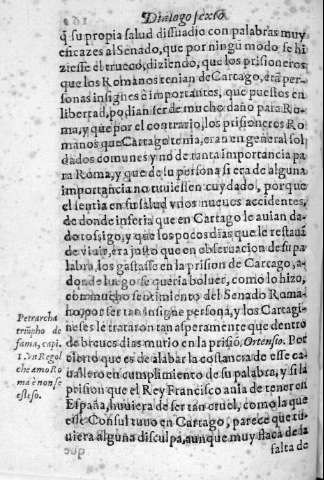 Dialogo sexto
q̃ su propia salud dissuadio con palabras muy
eficazes al Senado, que por ningũ modo se hi
ziesse el trueco, diziendo, que los prisioneros
que los Romanos tenian de Cartago, erã per-
sonas insignes è importantes, que puestos en
libertad, podian ser de mucho daño para Ro-
ma, y que por el contrario, los prisioneros Ro
manos que Cartago tenia, eran en general sol
dados comunes y no de tanta importancia pa
ra Roma, y que de su persona si era de alguna
importãcia no tuuiessen cuydado, porque
el sentia en su salud vnos nueuos accidentes,
de donde inferia que en Cartago le auian da-
do tossigo, y que los pocos dias que le restauã
de viuir, era justo que en obseruacion de su pa
labra, los gastasse en la prision de Cartago, a-
donde luego se queria boluer, como lo hizo,
con mucho sentimiento del Senado Roma-
no por ser tan insigne persona, y los Cartagi-
neses le trataron tan asperamente que dentro
de breues dias murio en la prisiõ, Ortensio. Por
cierto que es de alabar la costancia de esse ca-
uallero en cumplimiento de su palabra, y si la
prision que el Rey Francisco auia de tener en
España, huuiera de ser tan cruel, como la que
esse Consul tuuo en Cartago, parece que tu-
uiera alguna disculpa, aunque muy flaca de la
falta de
Petrarcha
triũpho de
fama, capi.
1. Vn Regol
che amo Ro
ma è non se
estesso.